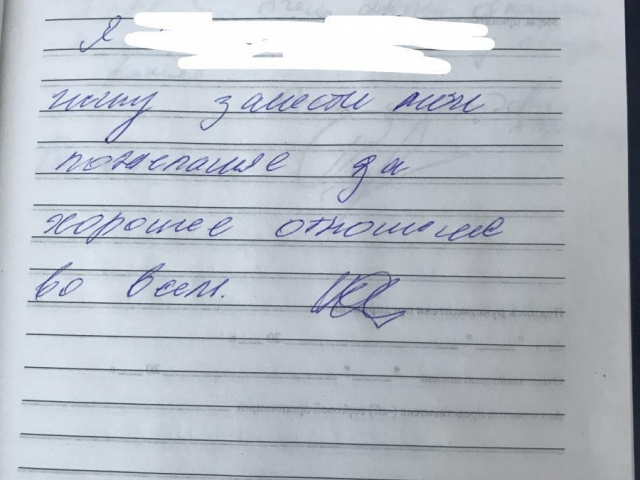 Я
хочу занести мои
пожелание за
хорошее отношение
во всем.